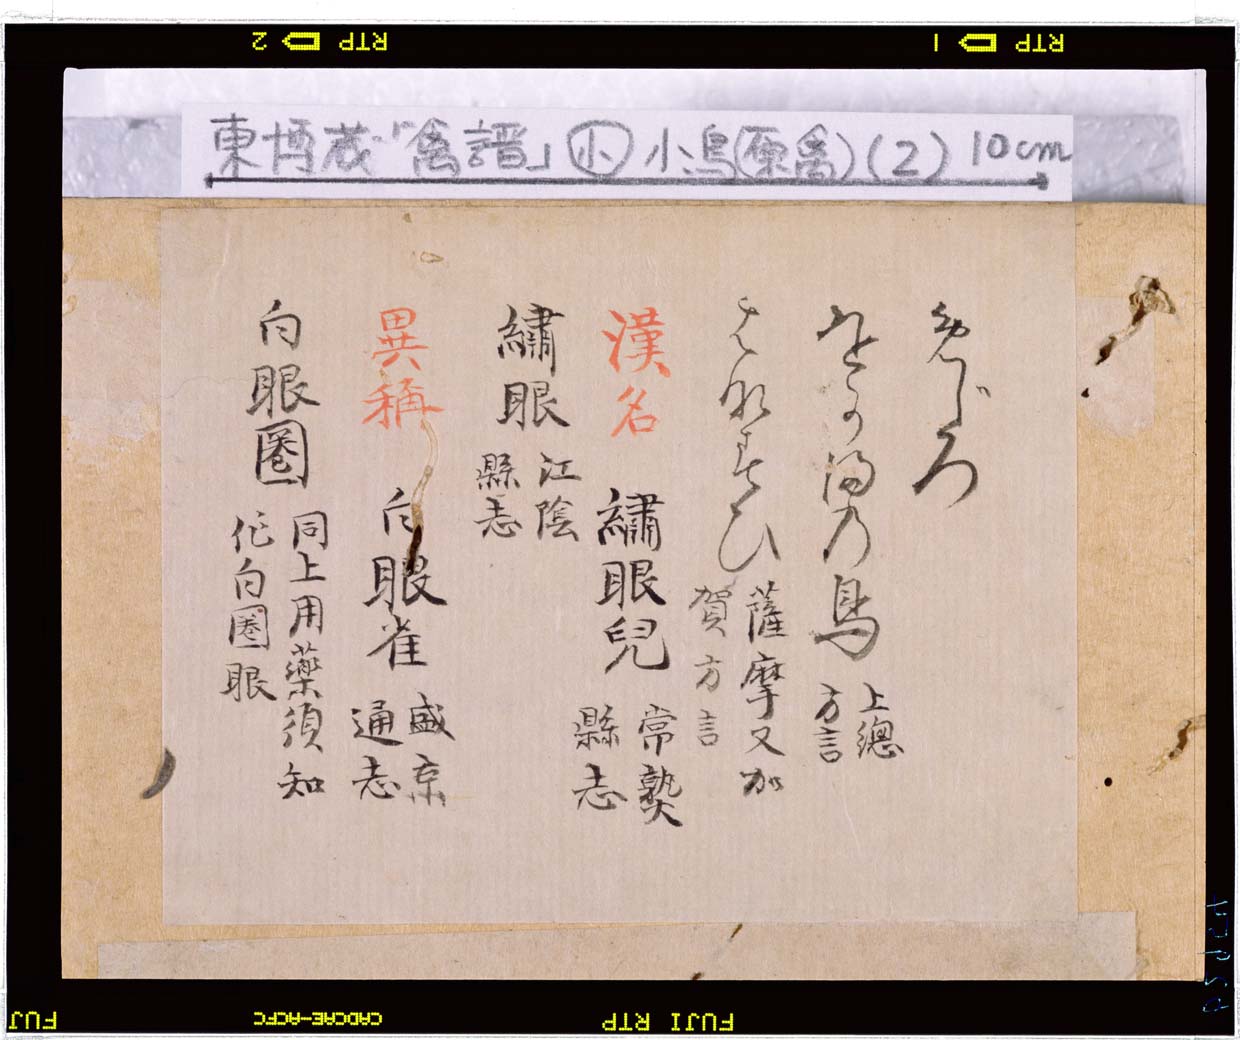 RTP 2
RTP 1
東博蔵「禽譜」小 小鳥(原禽)(2) 10cm
めじろ
の鳥 上總
方言
はなすひ 薩摩又加
賀方言
漢名 繡眼兒 常熟
縣志
繡眼 江陰
縣志
異稱 白眼雀 盛京
通志
白眼圈 同上用藥須知
作白圈眼
FUJI RTP
CADCAE-ACFC
FUJ